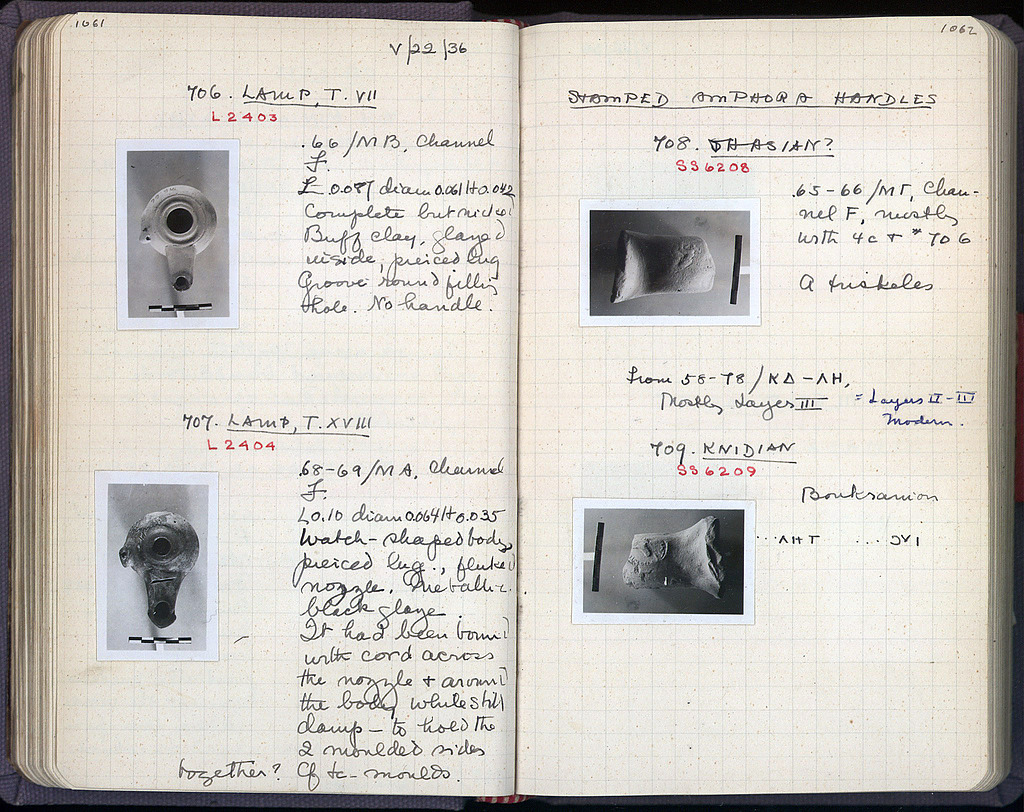 1061
V/22/36
706. LAMP, T. VII
L 2403
.66/MB, Channel
F.
L 0.087 diam 0.061 H 0.042
Complete but nicked
Buff clay, glazed
inside, pierced lug
Groove round filling
hole. No handle.
707. LAMP, T. XVIII
L 2404
.68-69/MA, Channel
F.
L 0.10 diam 0.064 H 0.035
Watch-shaped body,
pierced lug., fluted
nozzle. Metallic
black glaze.
It had been bound
with cord across
the nozzle + around
the body while still
damp — to hold the
2 moulded sides
together? Cf tc-moulds.
1062
STAMPED AMPHORA HANDLES
708. THASIAN?
SS 6208
.65-66/MΓ, Chan-
nel F, mostly
with 4c + # 706
A triskeles
From 58-78/ΚΔ-ΛΗ,
Mostly Layer III = Layers II-III
Modern.
709. KNIDIAN
SS 6209
Boukranion
...ΛΗΤ ...